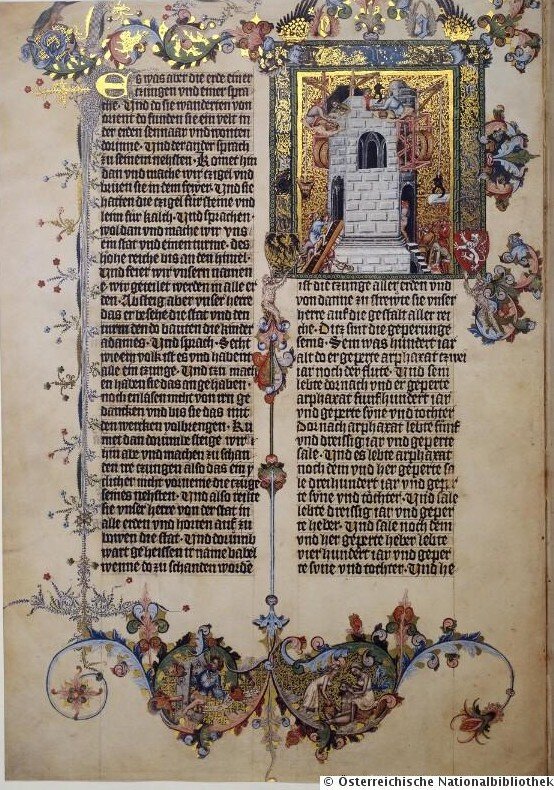 Es was aber die erde einer
czungen und einer spra
che. Und do sie wanderten von
orient do funden sie ein velt in
der erden sennaar und wonten
dorinne. Und der ander sprach
zu seinem nehsten. Komet hin
dan und mache wir czigel und
brenen sie in dem fewer. Und sie
hatten die czigel fur steine und
leim fur kalch. Und sprachen
wol dan und mache wir uns
ein stat und einen turme. des
hohe reiche bis an den himel.
Und feier wir unsern namen
e wir geteilet werden in alle er
den. Absteig aber unser herre
das er besehe die stat und den
turm den do bauten die kinder
adames. Und sprach. Secht
wie ein volk ist es und habent
alle ein czunge. Und czu mach
en haben sie das an gehaben.
noch enlasen nicht von iren ge
dancken und bis sie das mit
den wercken volbrengen. Ku
met dan dorumb steige wir
im abe und machen zu schan
den ire czungen also das ein y
clicher nicht vorneme die czunge
seines nehsten. Und also teilte
sie unser herre von der stat in
alle erden und horten auf zu
bowen die stat. Und dorumb
wart geheissen ir name babel
wenne do zu schanden worde
ist die czunge aller erden und
von danne zu strewte sie unser
herre auf die gestalt aller rei
che. Ditz sint die geperunge
sems. Sem was hundert iar
alt do er geperte arphaxat czwei
iar noch der flute. Und sem
lebte dornach und er geperte
arphaxat funfhundert iar
und geperte syne und tochter
Dor nach arphaxat lebte funf
und dreissig iar und geperte
sale. Und es lebte arphaxat
noch dem und her geperte sa
le dreihundert iar und geper
te syne und tochter. Und sale
lebte dreissig iar und geper
te heber. Und sale noch dem
und her geperte heber lebte
vier hundert iar und geper
te syne und tochter. Und he
© Österreichische Nationalbibliothek